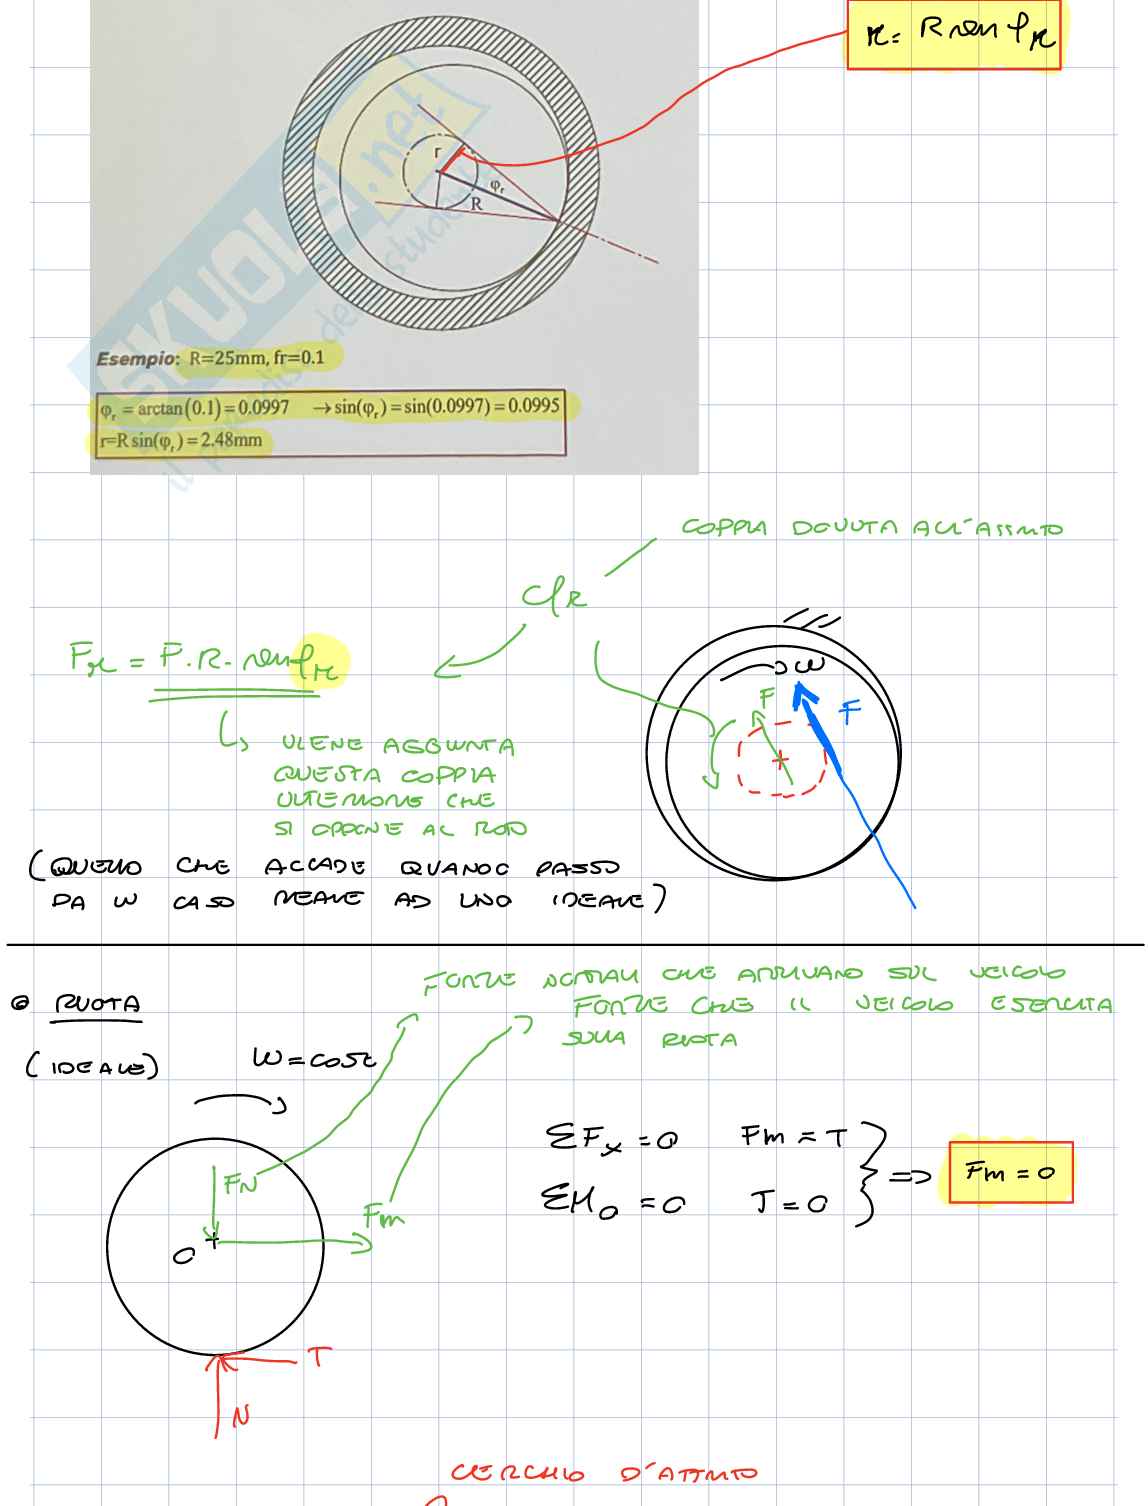 r = R sen φr
r
φr
R
Esempio: R=25mm, fr=0.1
φr = arctan(0.1) = 0.0997 → sin(φr) = sin(0.0997) = 0.0995
r=R sin(φr) = 2.48mm
SKUOLA.net
COPPIA DOVUTA ALL'ATTRITO
CfR
Fr = F.R. sen φr
ω
F
F
VIENE AGGIUNTA
QUESTA COPPIA
ULTERIORE CHE
SI OPPONE AL MOTO
(QUELLO CHE ACCADE QUANDO PASSO
DA UN CASO REALE AD UNO IDEALE)
FORZE NORMALI CHE ARRIVANO SUL VEICOLO
RUOTA
FORZE CHE IL VEICOLO ESERCITA
SULLA RUOTA
(IDEALE)
ω = cost
ΣFx = 0 Fm = T
⇒ Fm = 0
ΣMo = 0 T = 0
FN
Fm
O
T
N
CERCHIO D'ATTRITO